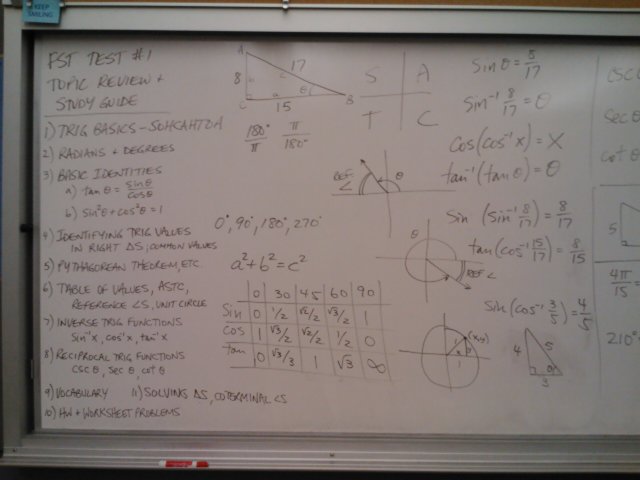 KEEP
SMILING
FST TEST #1
TOPIC REVIEW +
STUDY GUIDE
1) TRIG BASICS - SOHCAHTOA
2) RADIANS + DEGREES
3) BASIC IDENTITIES
a) tan θ = sin θ / cos θ
b) sin²θ + cos²θ = 1
4) IDENTIFYING TRIG VALUES
IN RIGHT ΔS, COMMON VALUES
5) PYTHAGOREAN THEOREM, ETC.
6) TABLE OF VALUES, ASTC,
REFERENCE ∠S, UNIT CIRCLE
7) INVERSE TRIG FUNCTIONS
sin⁻¹x, cos⁻¹x, tan⁻¹x
8) RECIPROCAL TRIG FUNCTIONS
csc θ, sec θ, cot θ
9) VOCABULARY 11) SOLVING ΔS, COTERMINAL ∠S
10) HW + WORKSHEET PROBLEMS
A
17
8 b c
C a θ B
15
180°/π π/180°
S A
T C
REF. ∠ θ
0°, 90°, 180°, 270°
a² + b² = c²
0 30 45 60 90
Sin 0 1/2 √2/2 √3/2 1
Cos 1 √3/2 √2/2 1/2 0
tan 0 √3/3 1 √3 ∞
θ
REF ∠
(x,y)
1
Sin θ = 8/17
Sin⁻¹ 8/17 = θ
Cos(cos⁻¹ x) = X
tan⁻¹(tan θ) = θ
Sin (Sin⁻¹ 8/17) = 8/17
tan(cos⁻¹ 15/17) = 8/15
Sin(cos⁻¹ 3/5) = 4/5
4 5
θ
3
CSC
Sec θ
cot θ
5
4π/15
210°